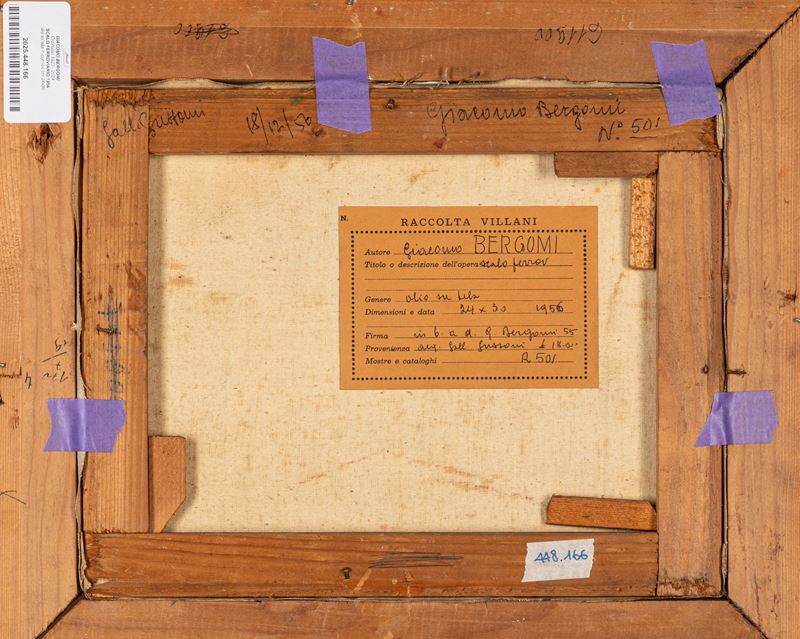 GIACOMO BERGOMI
SCALO FERROVIARIO, 1956
2025.448.166
611800
Gall. Gussoni
18/12/56
Giacomo Bergomi
N° 501
N.
RACCOLTA VILLANI
Autore Giacomo BERGOMI
Titolo o descrizione dell'opera scalo ferrov
Genere olio su tela
Dimensioni e data 24 x 30 1956
Firma in b. a d. G. Bergomi 55
Provenienza acq. Gall. Gussoni £ 18.
Mostre e cataloghi R 501
448.166